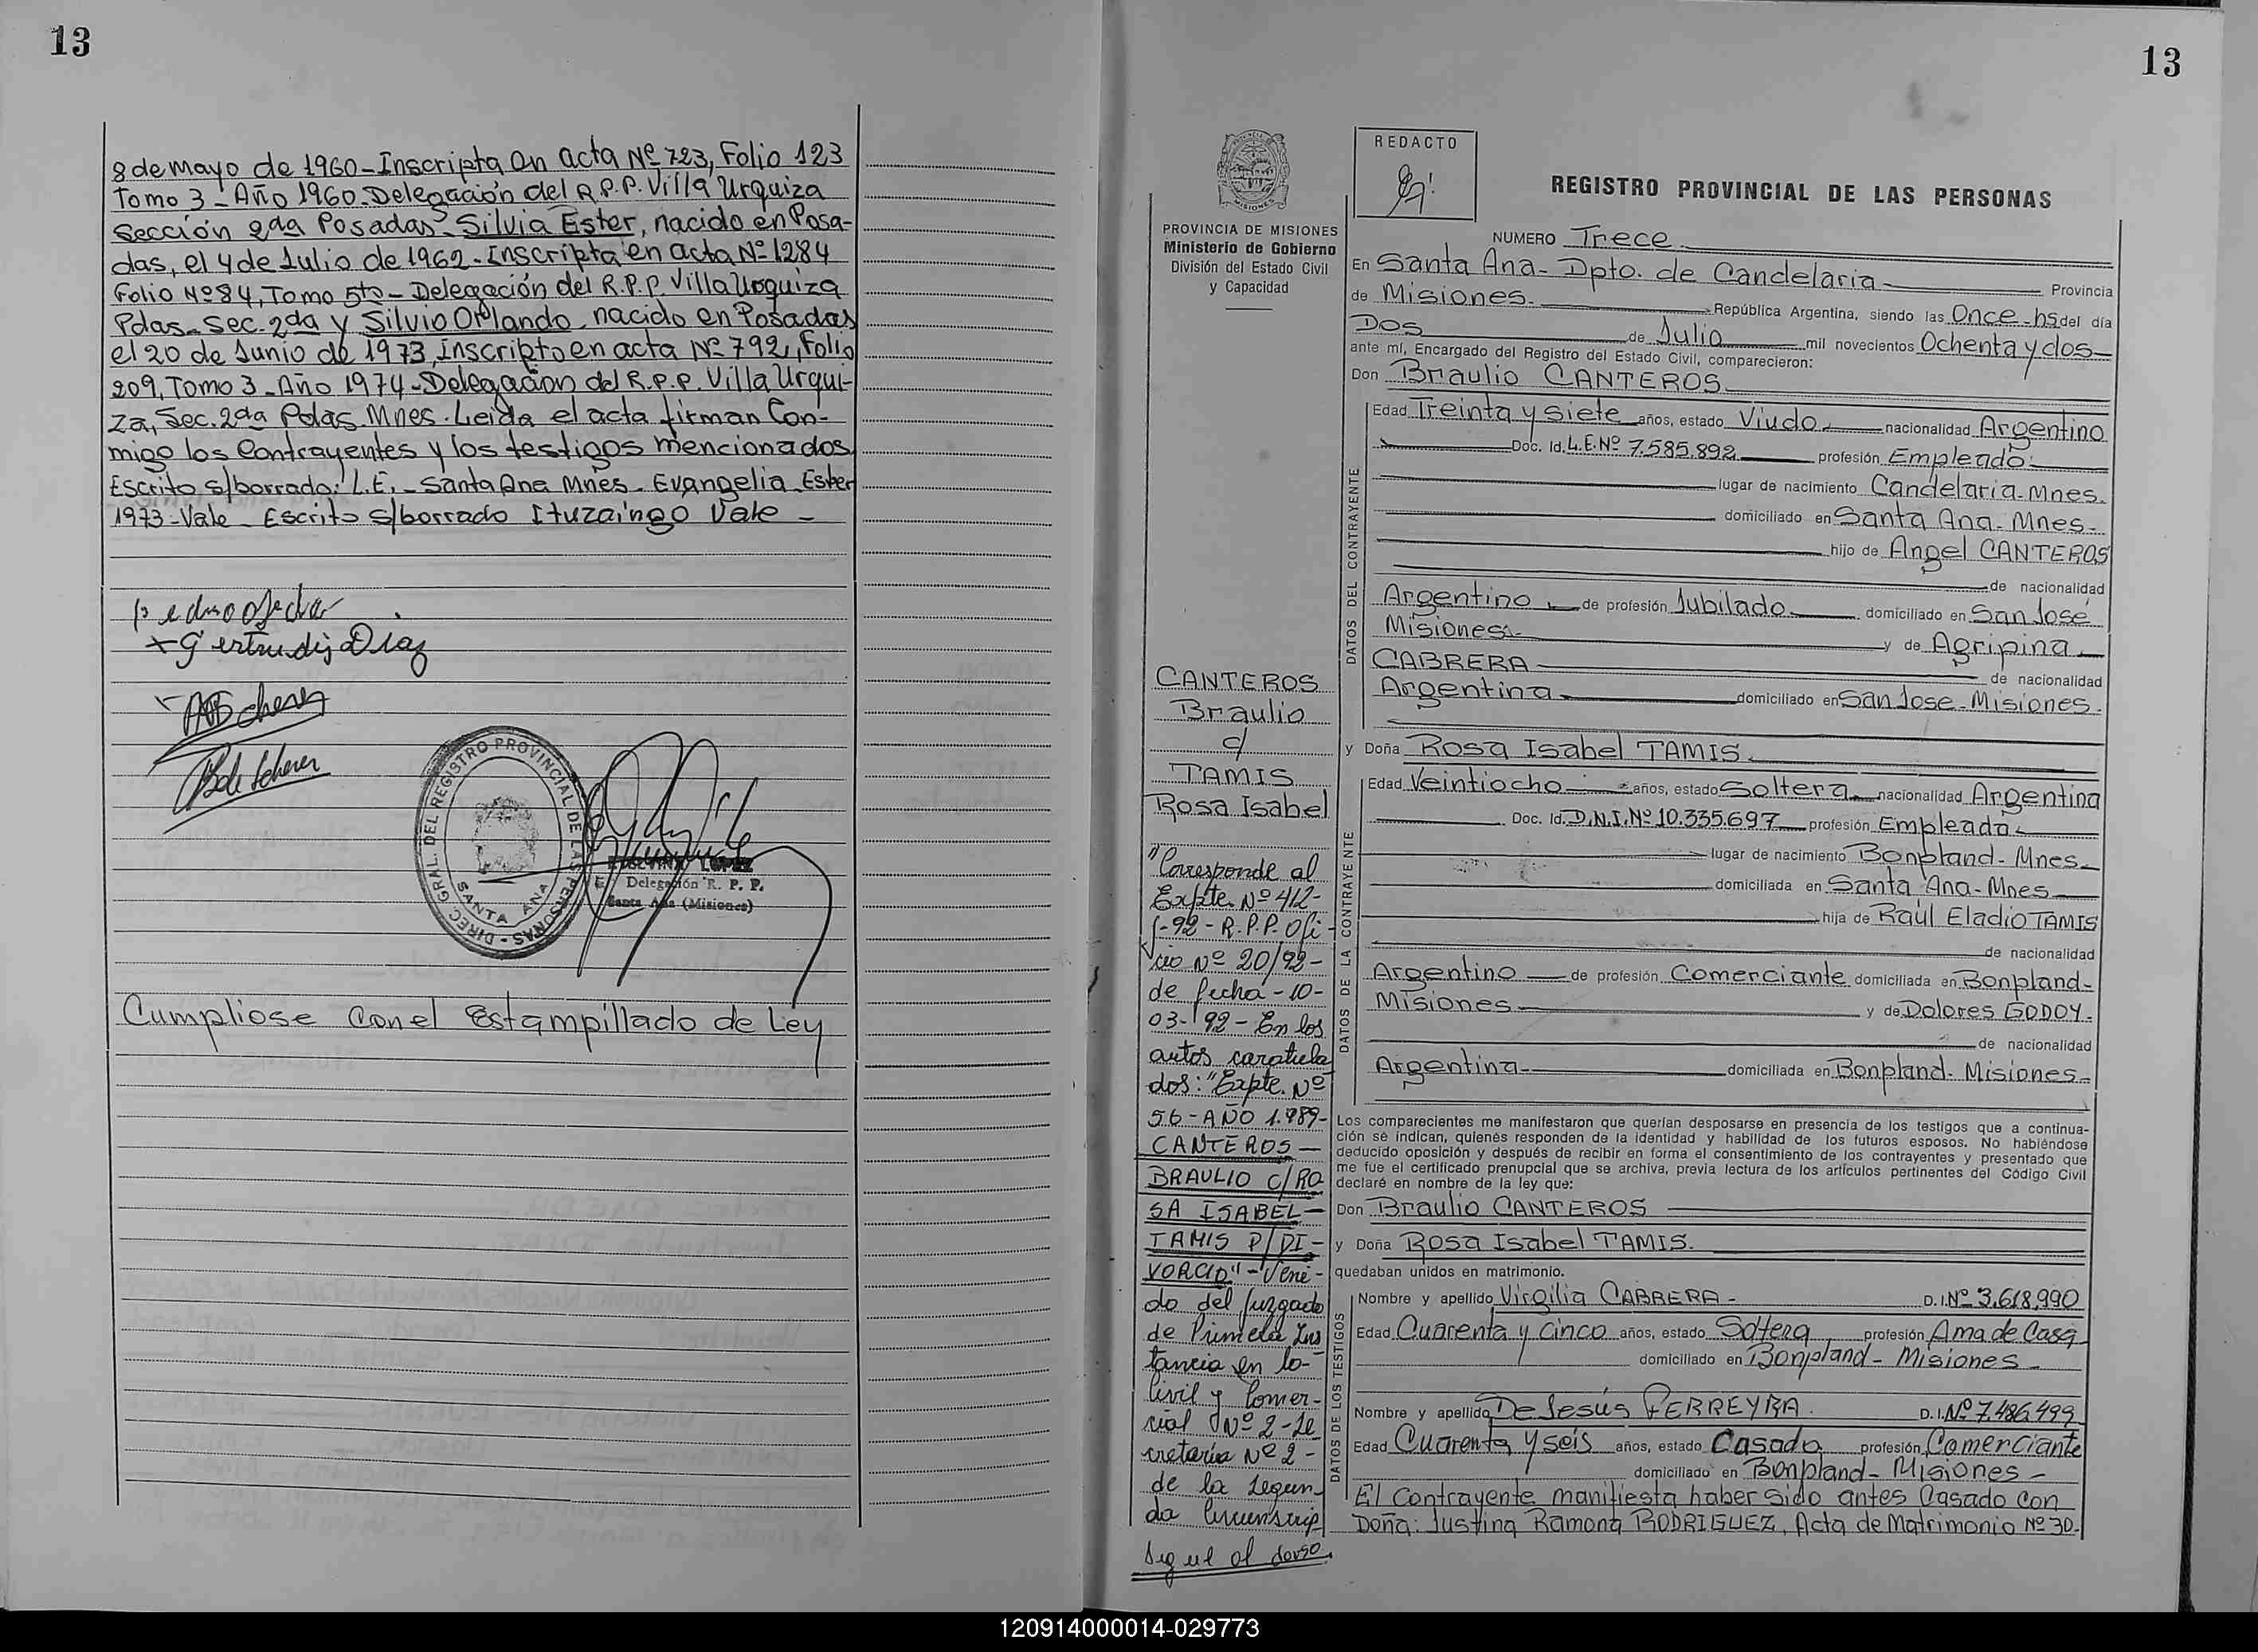 13
8 de mayo de 1960-Inscripta en acta Nº 723, Folio 123
Tomo 3 - Año 1960-Delegación del R.P.P. Villa Urquiza
Sección 2da Posadas- Silvia Ester, nacido en Posa-
das, el 4 de Julio de 1962-Inscripta en acta Nº 1284
Folio Nº 84, Tomo 5to - Delegación del R.P.P. Villa Urquiza
Pdas- Sec. 2da y Silvio Orlando, nacido en Posadas
el 20 de Junio de 1973, inscripto en acta Nº 792, Folio
209, Tomo 3 - Año 1974-Delegación del R.P.P. Villa Urqui-
za, Sec. 2da Pdas Mnes. Leida el acta firman Con-
migo los Contrayentes y los testigos mencionados
Escrito s/borrado: L.E.- Santa Ana Mnes- Evangelia Ester
1973-Vale- Escrito s/borrado Ituzaingo Vale-
+Gertrudis Diaz
DIREC. GRAL. DEL REGISTRO PROVINCIAL DE LAS PERSONAS - SANTA ANA
LOPEZ
Delegación R. P. P.
Santa Ana (Misiones)
Cumpliose con el Estampillado de Ley
13
REDACTO
PROVINCIA DE MISIONES
Ministerio de Gobierno
División del Estado Civil
y Capacidad
REGISTRO PROVINCIAL DE LAS PERSONAS
NUMERO Trece
En Santa Ana- Dpto. de Candelaria Provincia
de Misiones. República Argentina, siendo las Once hs del día
DOS de Julio mil novecientos Ochenta y dos
ante mí, Encargado del Registro del Estado Civil, comparecieron:
Don Braulio CANTEROS
DATOS DEL CONTRAYENTE
Edad Treinta y siete años, estado Viudo nacionalidad Argentino
Doc. Id. L.E.Nº 7.585.892 profesión Empleado
lugar de nacimiento Candelaria-Mnes.
domiciliado en Santa Ana-Mnes-
hijo de Angel CANTEROS
de nacionalidad
Argentino de profesión Jubilado domiciliado en San José
Misiones- y de Agripina
CABRERA de nacionalidad
Argentina domiciliado en San Jose-Misiones.
y Doña Rosa Isabel TAMIS
DATOS DE LA CONTRAYENTE
Edad Veintiocho años, estado Soltera nacionalidad Argentina
Doc. Id. D.N.I.Nº 10.335.697 profesión Empleada
lugar de nacimiento Bonpland-Mnes-
domiciliada en Santa Ana-Mnes
hija de Raúl Eladio TAMIS
de nacionalidad
Argentino de profesión Comerciante domiciliada en Bonpland-
Misiones y de Dolores GODOY-
de nacionalidad
Argentina domiciliada en Bonpland-Misiones-
Los comparecientes me manifestaron que querían desposarse en presencia de los testigos que a continua-
ción se indican, quienés responden de la identidad y habilidad de los futuros esposos. No habiéndose
deducido oposición y después de recibir en forma el consentimiento de los contrayentes y presentado que
me fue el certificado prenupcial que se archiva, previa lectura de los artículos pertinentes del Código Civil
declaré en nombre de la ley que:
Don Braulio CANTEROS
y Doña Rosa Isabel TAMIS.
quedaban unidos en matrimonio.
DATOS DE LOS TESTIGOS
Nombre y apellido Virgilia CABRERA - D.I.Nº 3.618.990
Edad Cuarenta y Cinco años, estado Soltera profesión Ama de Casa
domiciliado en Bonpland-Misiones-
Nombre y apellido De Jesús FERREYRA. D.I.Nº 7.486.499
Edad Cuarenta y seis años, estado Casado profesión Comerciante
domiciliado en Bonpland-Misiones-
El Contrayente manifiesta haber sido antes Casado con
Doña: Justina Ramona RODRIGUEZ, Acta de Matrimonio Nº 30-
CANTEROS
Braulio
c/
TAMIS
Rosa Isabel
"Corresponde al
Expte. Nº 412-
-92- R.P.P. Ofi-
cio Nº 20/92-
de fecha -10-
03-92- En los
autos caratula
dos: "Expte. Nº
56-AÑO 1.989-
CANTEROS-
BRAULIO C/RO
SA ISABEL-
TAMIS P/DI-
VORCIO"- Veni-
do del Juzgado
de Primera Ins
tancia en lo-
Civil y Comer-
cial Nº 2-Se
cretaria Nº 2-
de la Segun-
da Circunscrip
Sigue al dorso.
120914000014-029773